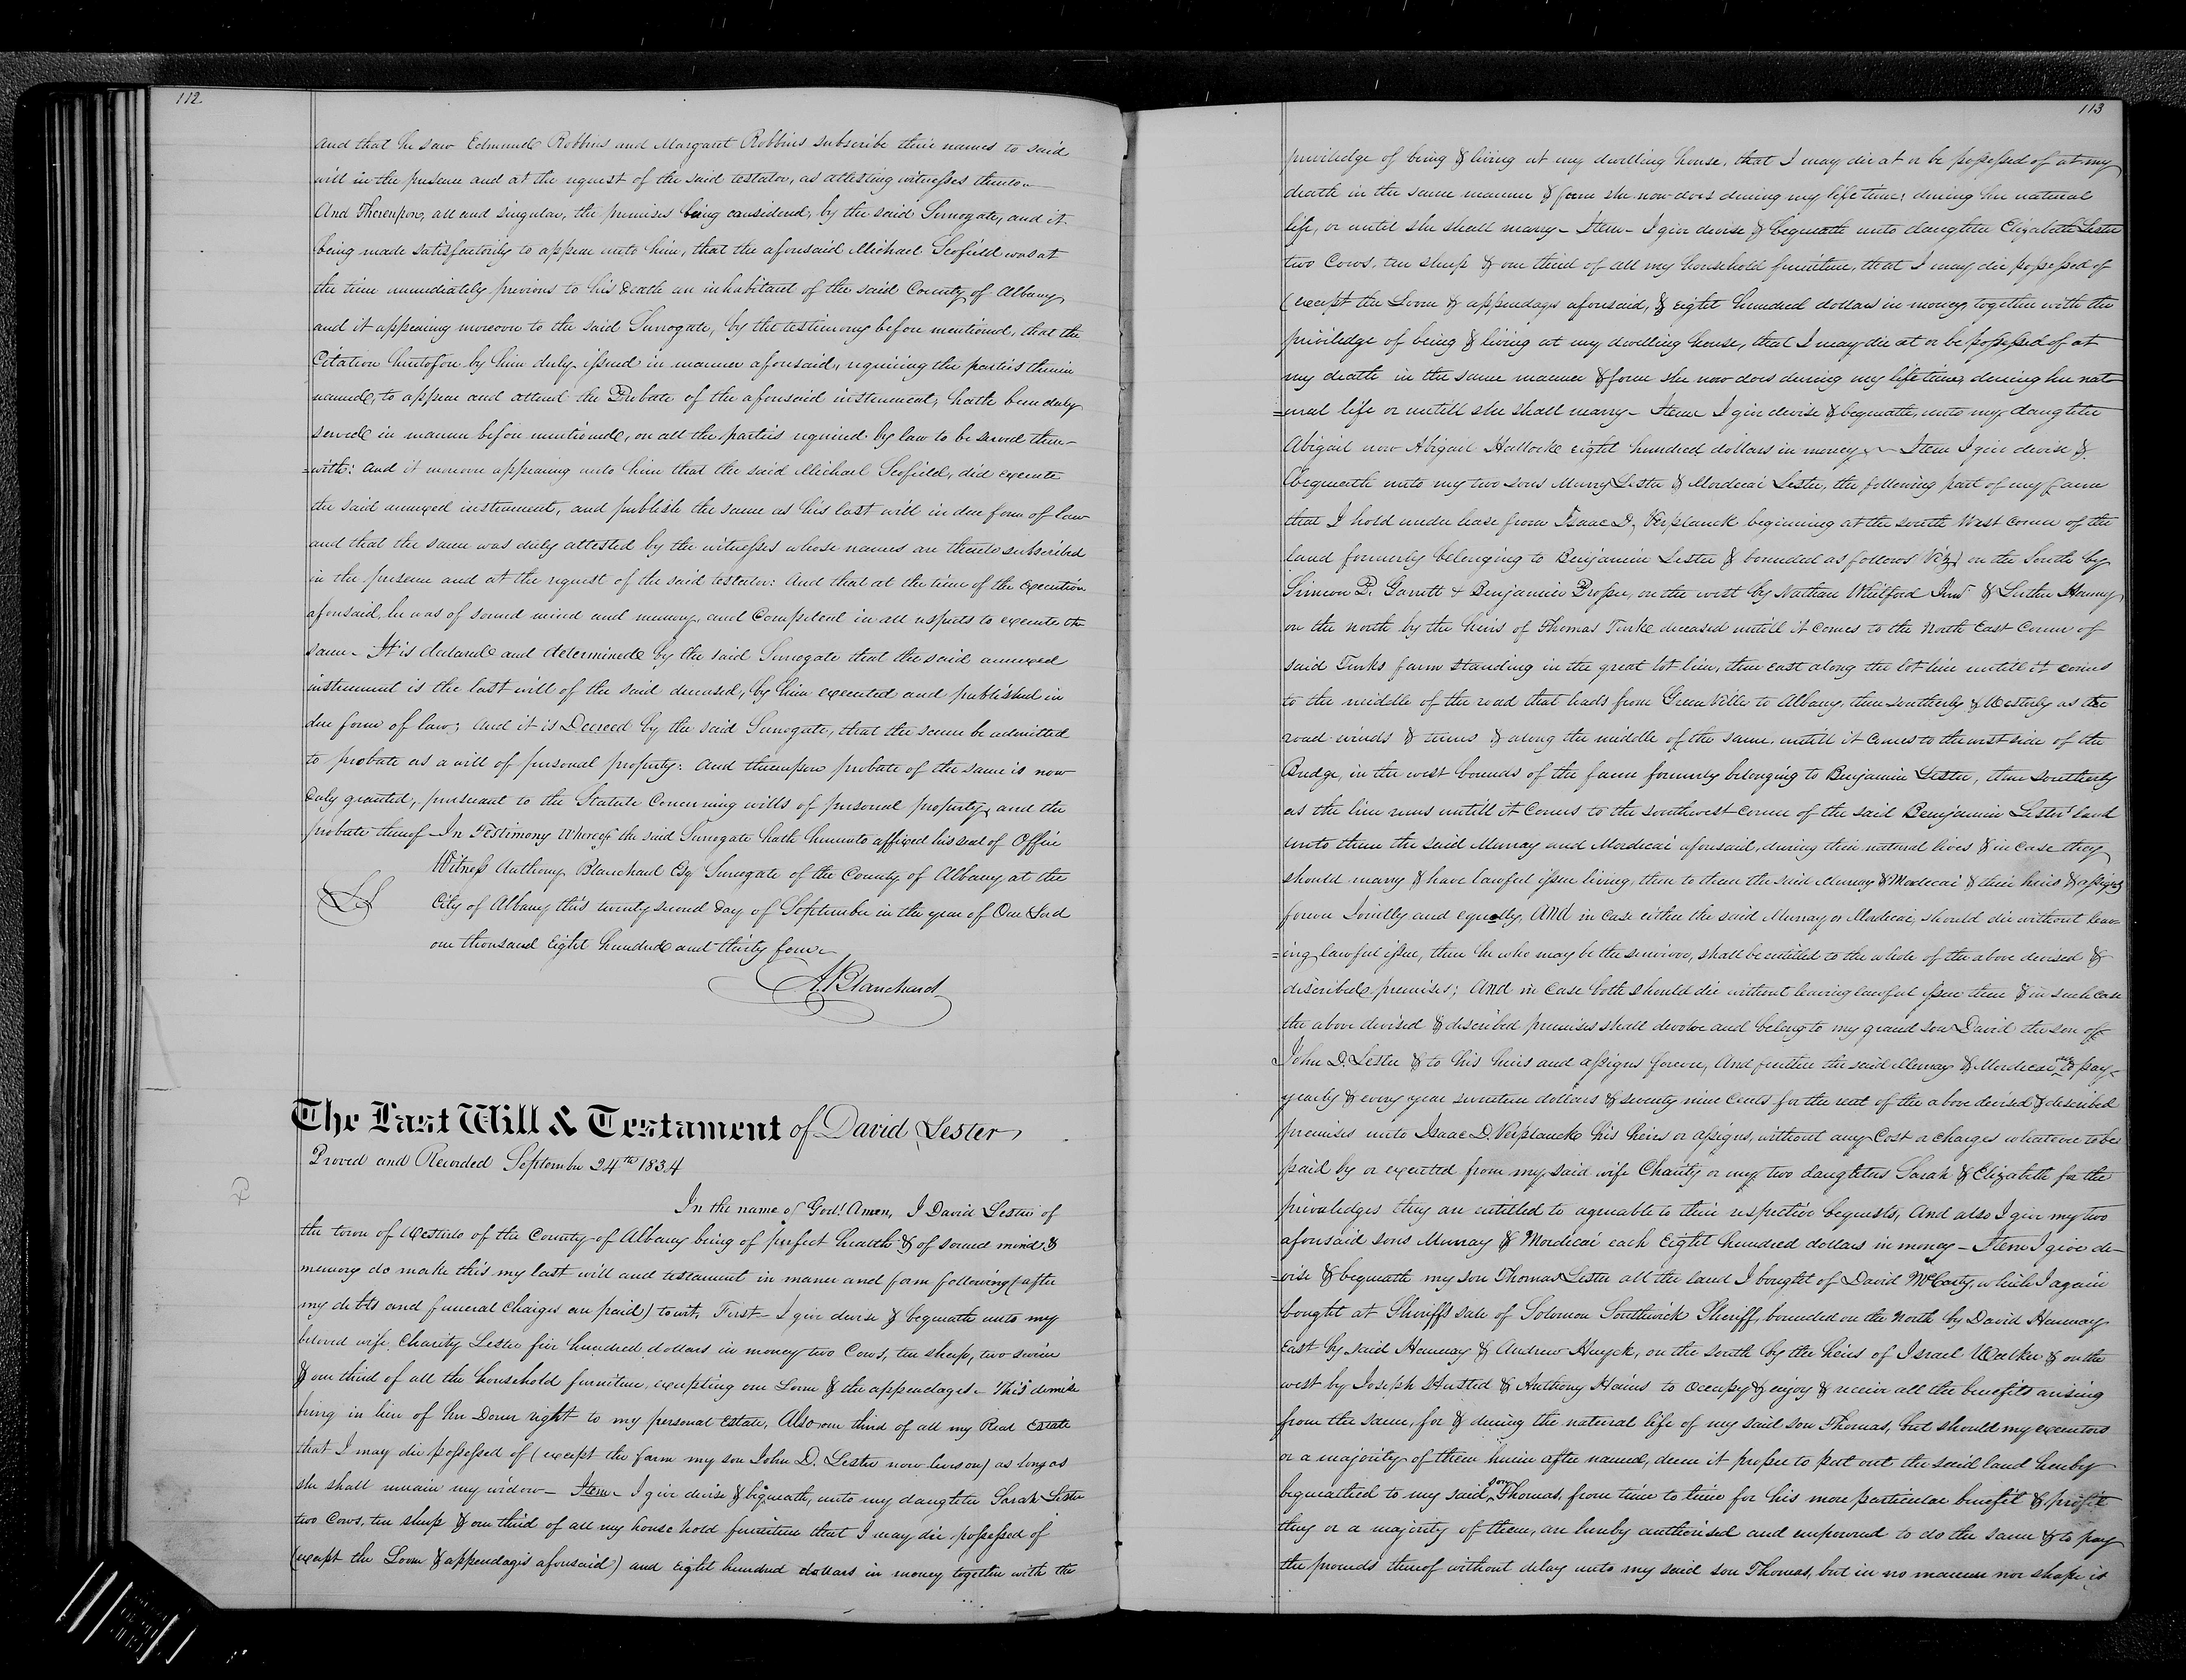 112
and that he saw Edmund Robbins and Margaret Robbins subscribe their names to said
will in the presence and at the request of the said testator, as attesting witnesses thereto
And Thereupon, all and singular, the premises being considered, by the said Surrogate, and it
being made satisfactorily to appear unto him, that the aforesaid Michael Scofield was at
the time immediately previous to his death an inhabitant of the said County of Albany
and it appearing moreover to the said Surrogate, by the testimony before mentioned, that the
Citation heretofore by him duly issued in manner aforesaid, requiring the parties therein
named, to appear and attend the Probate of the aforesaid instrument, hath been duly
served in manner before mentioned, on all the parties required by law to be served there-
=with: and it moreover appearing unto him that the said Michael Scofield, did execute
the said annexed instrument, and publish the same as his last will in due form of law
and that the same was duly attested by the witnesses whose names are thereto subscribed
in the presence and at the request of the said testator: And that at the time of the execution
aforesaid, he was of sound mind and memory, and Competent in all respects to execute the
same. It is declared and determined by the said Surrogate that the said annexed
instrument is the last will of the said deceased, by him executed and published in
due form of law; and it is Decreed by the said Surrogate, that the same be admitted
to probate as a will of personal property: and thereupon probate of the same is now
duly granted, pursuant to the Statute Concerning wills of personal property, and the
probate thereof - In Testimony Whereof the said Surrogate hath hereunto affixed his seal of Office
Witness Anthony Blanchard Esq Surrogate of the County of Albany at the
LS City of Albany this twenty second day of September in the year of Our Lord
one thousand Eight hundred and thirty four
A. Blanchard
The Last Will & Testament of David Lester
Proved and Recorded September 24th 1834
In the name of God! Amen, I David Lester of
the town of Westerlo of the County of Albany being of perfect health & of sound mind &
memory do make this my last will and testament in maner and form following (after
my debts and funeral charges are paid) towit, First - I give devise & bequeath unto my
beloved wife Charity Lester five hundred dollars in money two Cows, ten sheep, two swine
& one third of all the household furniture, excepting one Loom & the appendages - This demise
being in lieu of her Dower right to my personal Estate, Also one third of all my Real Estate
that I may die possessed of (except the farm my son John D. Lester now lives on) as long as
she shall remain my widow - Item - I give devise & bequeath, unto my daughter Sarah Lester
two Cows, ten sheep & one third of all my house hold furniture that I may die possessed of
(except the Loom & appendages aforesaid) and eight hundred dollars in money together with the
113
priviledge of being & living at my dwelling house, that I may die at or be possessed of at my
death in the same manner & form she now does during my life time; during her natural
life, or until she shall marry - Item - I give devise & bequeath unto daughter Elizabeth Lester
two Cows, ten sheep & one third of all my household furniture, that I may die possessed of
(except the Loom & appendages aforesaid, & eight hundred dollars in money, together with the
priviledge of being & living at my dwelling house, that I may die at or be possessed of at
my death in the same manner & form she now does during my life time, during her nat-
=ural life or untill she shall marry - Item I give devise & bequeath, unto my daughter
Abigail now Abigail Hallocke eight hundred dollars in money - Item I give devise &
bequeath unto my two sons Murry Lester & Mordecai Lester, the following part of my farm
that I hold under lease from Isaac D. Verplanck beginning at the south West corner of the
land formerly belonging to Benjamin Lester & bounded as follows Vizt on the South by
Simeon P. Garritt & Benjamin Prosper, on the west by Nathan Whitford & Luther Hanny,
on the north by the heirs of Thomas Turke deceased untill it comes to the North East Corner of
said Turks farm standing in the great lot line, then east along the lot line untill it comes
to the middle of the road that leads from Green Ville to Albany, then southerly & Westerly as the
road winds & turns & along the middle of the same, untill it comes to the west side of the
Bridge, in the west bounds of the farm formerly belonging to Benjamin Lester, then southerly
as the line runs untill it comes to the southwest corner of the said Benjamin Lester's land
unto them the said Murray and Mordicai aforesaid, during their natural lives & in case they
should marry & have lawful issue living, then to them the said Murray & Mordecai & their heirs & assigns
forever Joinilly and equally, And in case either the said Murray or Mordicai, should die without leav-
=ing lawful issue, then he who may be the survivor, shall be entitled to the whole of the above devised &
described premises; And in case both should die without leaving lawful issue then & in such case
the above devised & described premises shall devolve and belong to my grand son David the son off
John D. Lester & to his heirs and assigns forever, And further the said Murray & Mordicai are to pay
yearly & every year seventeen dollars & seventy nine Cents for the rent of the above devised & described
premises unto Isaac D. Verplanck his heirs or assigns, without any Cost or charges whatever to be
paid by or exacted from my said wife Charity or my two daughters Sarah & Elizabeth for the
privaledges they are entitled to agreeable to their respective bequests, And also I give my two
aforesaid sons Murray & Mordicai each Eight hundred dollars in money - Item I give de-
=vise & bequeath my son Thomas Lester all the land I bought of David McCarty, which I again
bought at Sheriff's sale of Solomon Southwick Sheriff, bounded on the North by David Hannay
East by said Hannay & Andrew Huyck, on the south by the heirs of Israel Walker & on the
west by Joseph Husted & Anthony Hains to occupy & enjoy & receive all the benefits arising
from the same, for & during the natural life of my said son Thomas, but should my executors
or a majority of them herein after named, deem it proper to put out the said land hereby
bequeathed to my said son Thomas, from time to time for his more particular benefit & profit
they or a majority of them, are hereby authorised and empowered to do the same & to pay
the proceeds thereof without delay unto my said son Thomas, but in no manner nor shape is